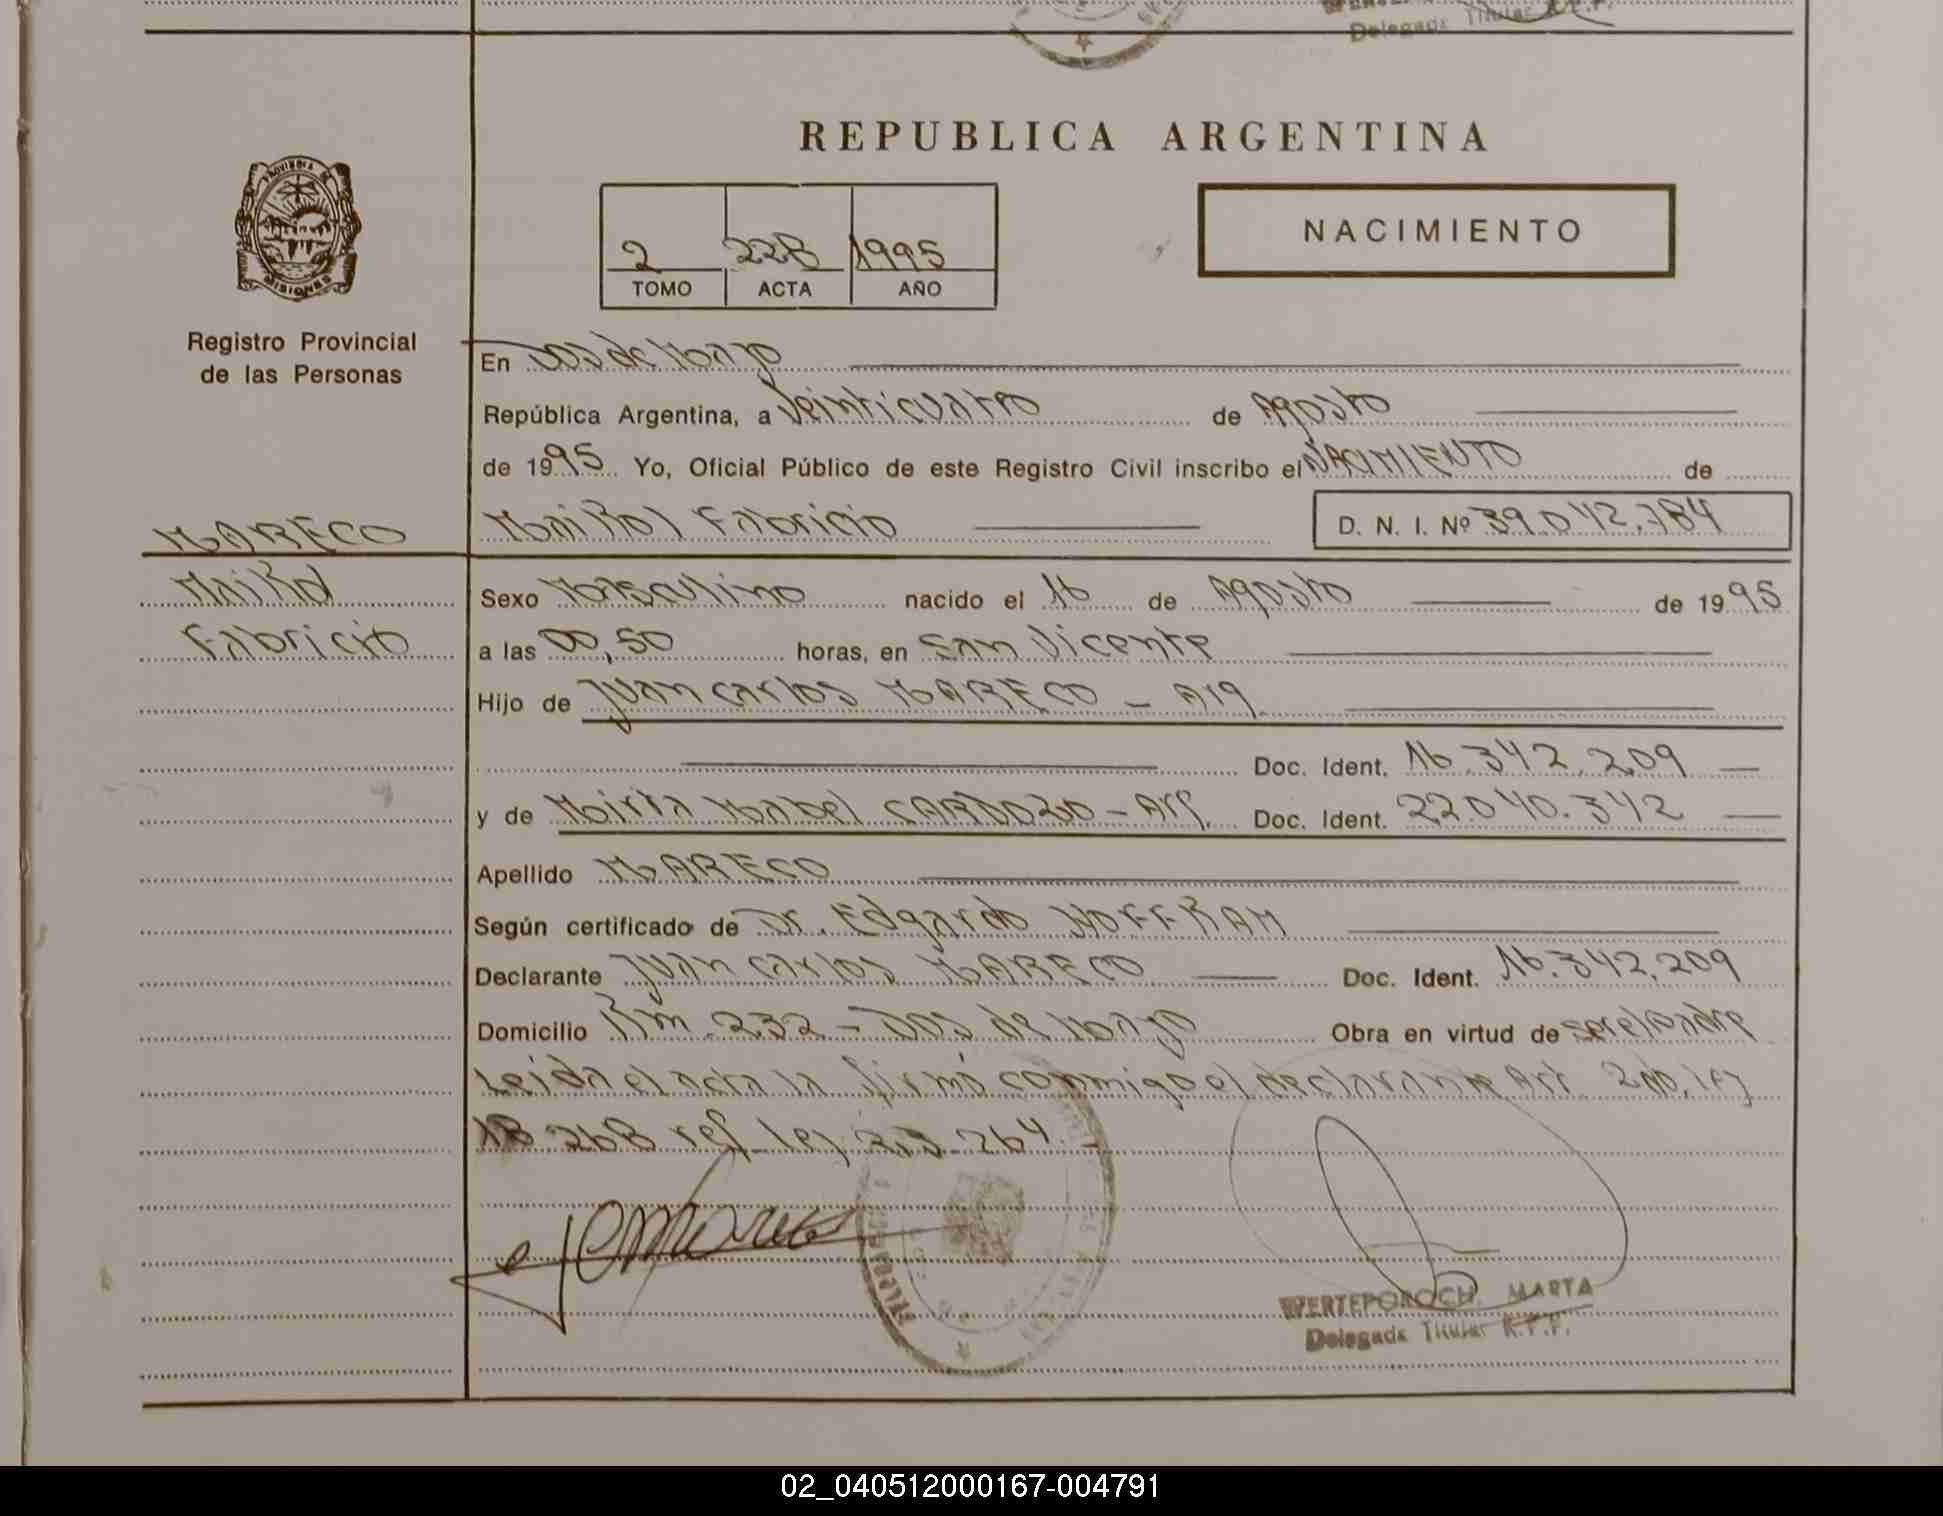 Delegada Titular R.P.P.
REPUBLICA ARGENTINA
PROVINCIA DE
MISIONES
2 228 1995
TOMO ACTA AÑO
NACIMIENTO
Registro Provincial
de las Personas
En Dos de Mayo
República Argentina, a Veinticuatro de Agosto
de 1995 Yo, Oficial Público de este Registro Civil inscribo el NACIMIENTO de
MARECO
Maikol Fabricio D. N. I. Nº 39.042.784
Maikol
Fabricio
Sexo Masculino nacido el 16 de Agosto de 1995
a las 00,50 horas, en San Vicente
Hijo de Juan Carlos MARECO - Arg.
Doc. Ident. 16.342.209
y de Mirta Mabel CARDOZO - Arg. Doc. Ident. 22.040.342
Apellido MARECO
Según certificado de Dr. Edgardo HOFFKAM
Declarante Juan Carlos MARECO Doc. Ident. 16.342.209
Domicilio Km. 232 - Dos de Mayo Obra en virtud de ser el padre
Leida el acta la firmó conmigo el declarante Art. 2do. ley
18.268 ref. ley 23.264.-
WERTEPOROCH, MARTA
Delegada Titular R.P.P.
02_040512000167-004791